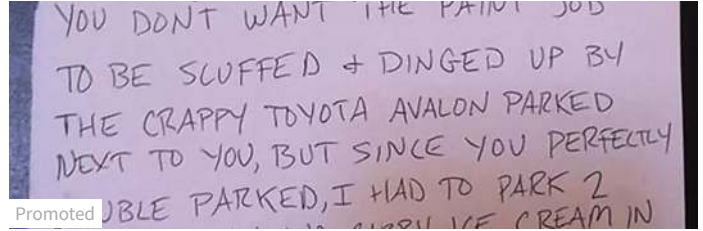 YOU DONT WANT THE PAINT JOB
TO BE SCUFFED & DINGED UP BY
THE CRAPPY TOYOTA AVALON PARKED
NEXT TO YOU, BUT SINCE YOU PERFECTLY
UBLE PARKED, I HAD TO PARK 2
ICE CREAM IN
Promoted